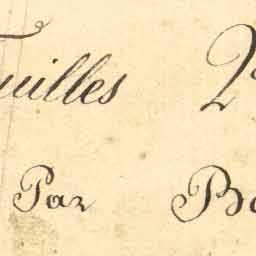 uilles 2
Par B